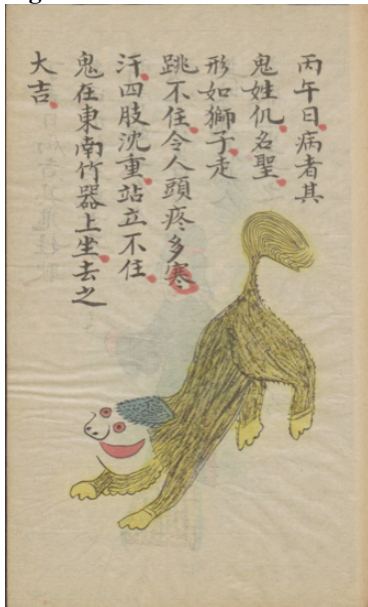 丙午日病者其
鬼姓仉名聖
形如獅子走
跳不住令人頭疼多寒
汗四肢沈重站立不住
鬼在東南竹器上坐去之
大吉